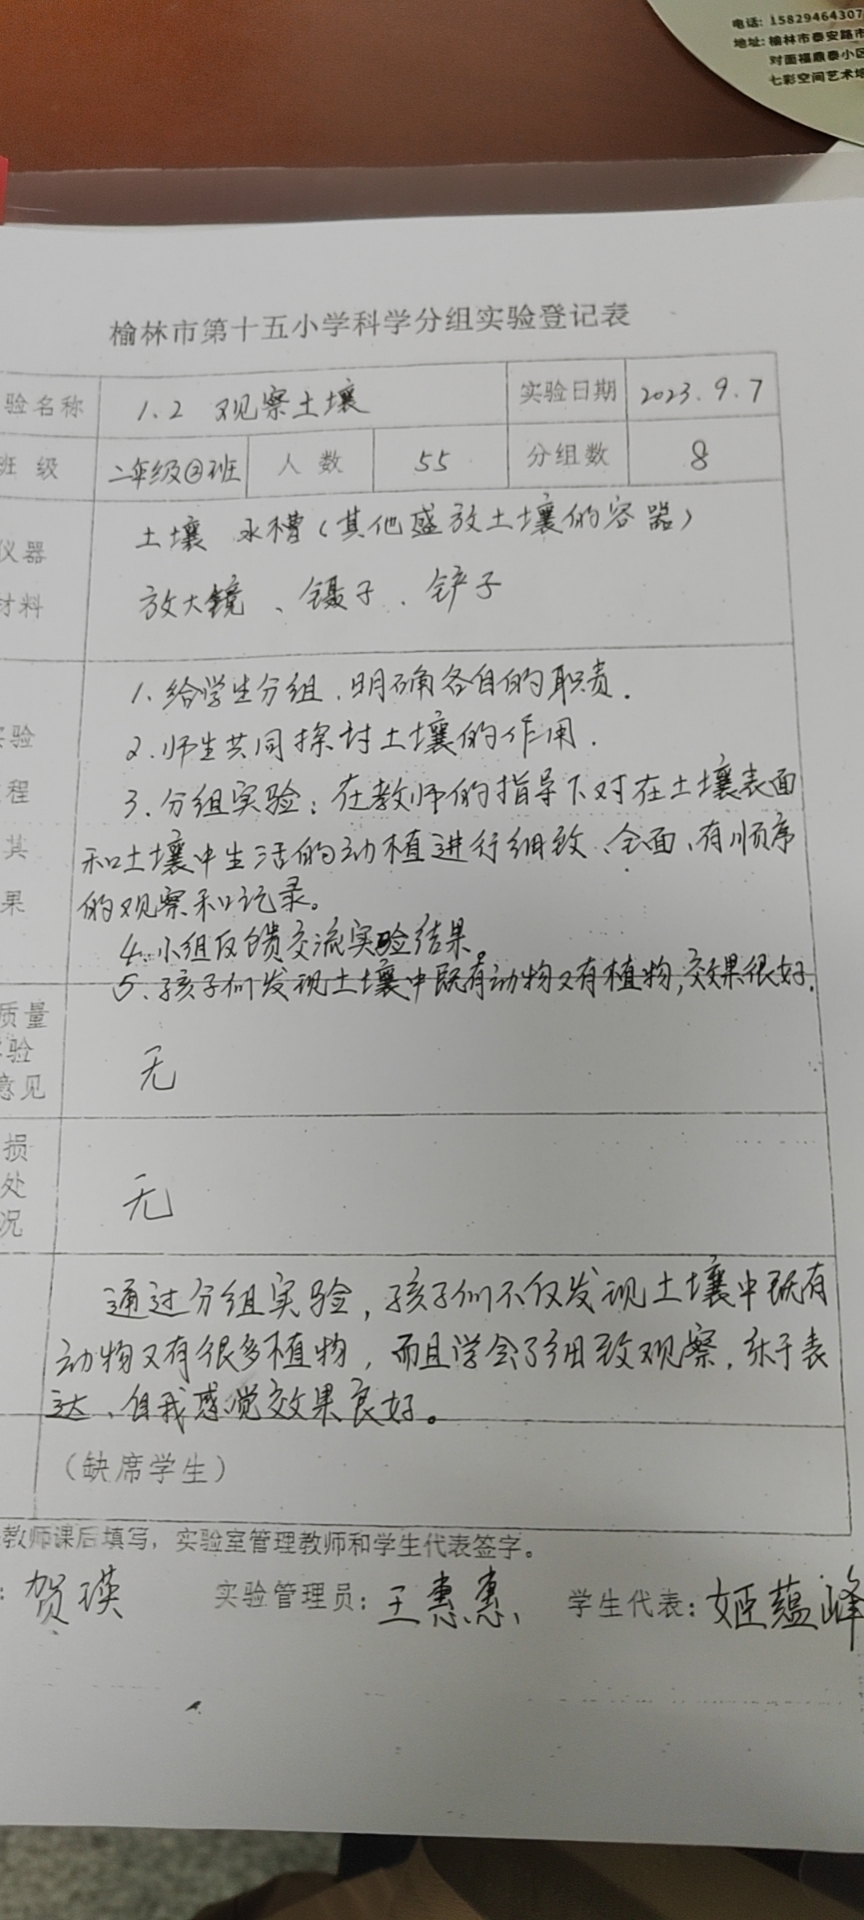 电话: 15829464307
地址: 榆林市泰安路市
对面福鼎泰小区
七彩空间艺术培
榆林市第十五小学科学分组实验登记表
验名称 1.2 观察土壤 实验日期 2023.9.7
班 级 二年级③班 人 数 55 分组数 8
仪器 土壤 水槽(其他盛放土壤的容器)
材料 放大镜、镊子、铲子
1. 给学生分组,明确各自的职责.
实验 2.师生共同探讨土壤的作用.
程 3.分组实验:在教师的指导下对在土壤表面
其 和土壤中生活的动植进行细致、全面、有顺序
果 的观察和记录。
4.小组反馈交流实验结果。
5.孩子们发现土壤中既有动物又有植物,效果很好.
质量
实验 无
意见
损
处 无
况
通过分组实验,孩子们不仅发现土壤中既有
动物又有很多植物,而且学会了细致观察,乐于表
达、自我感觉效果良好。
(缺席学生)
教师课后填写,实验室管理教师和学生代表签字。
: 贺瑛 实验管理员: 王惠惠 学生代表: 姬蕴峰